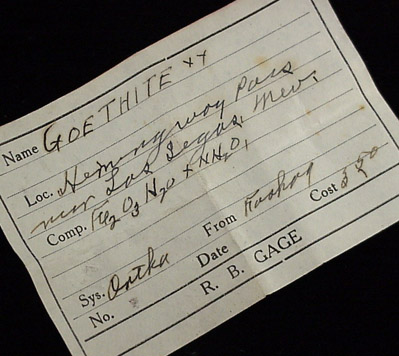 Name GOETHITE xx
Loc. Hemingway Pass
near Las Vegas, Nev.
Comp. Fe2O3 H2O + NH2O,
Sys. Ortho From
No. Date Cost $ 2.50
R. B. GAGE